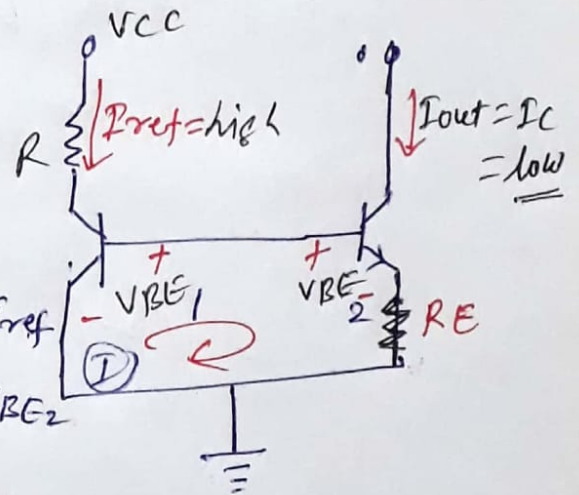 VCC
Iref=high
R
Iout=IC
=low
+
+
VBE1
VBE2
-
-
RE
ref
I
BE2